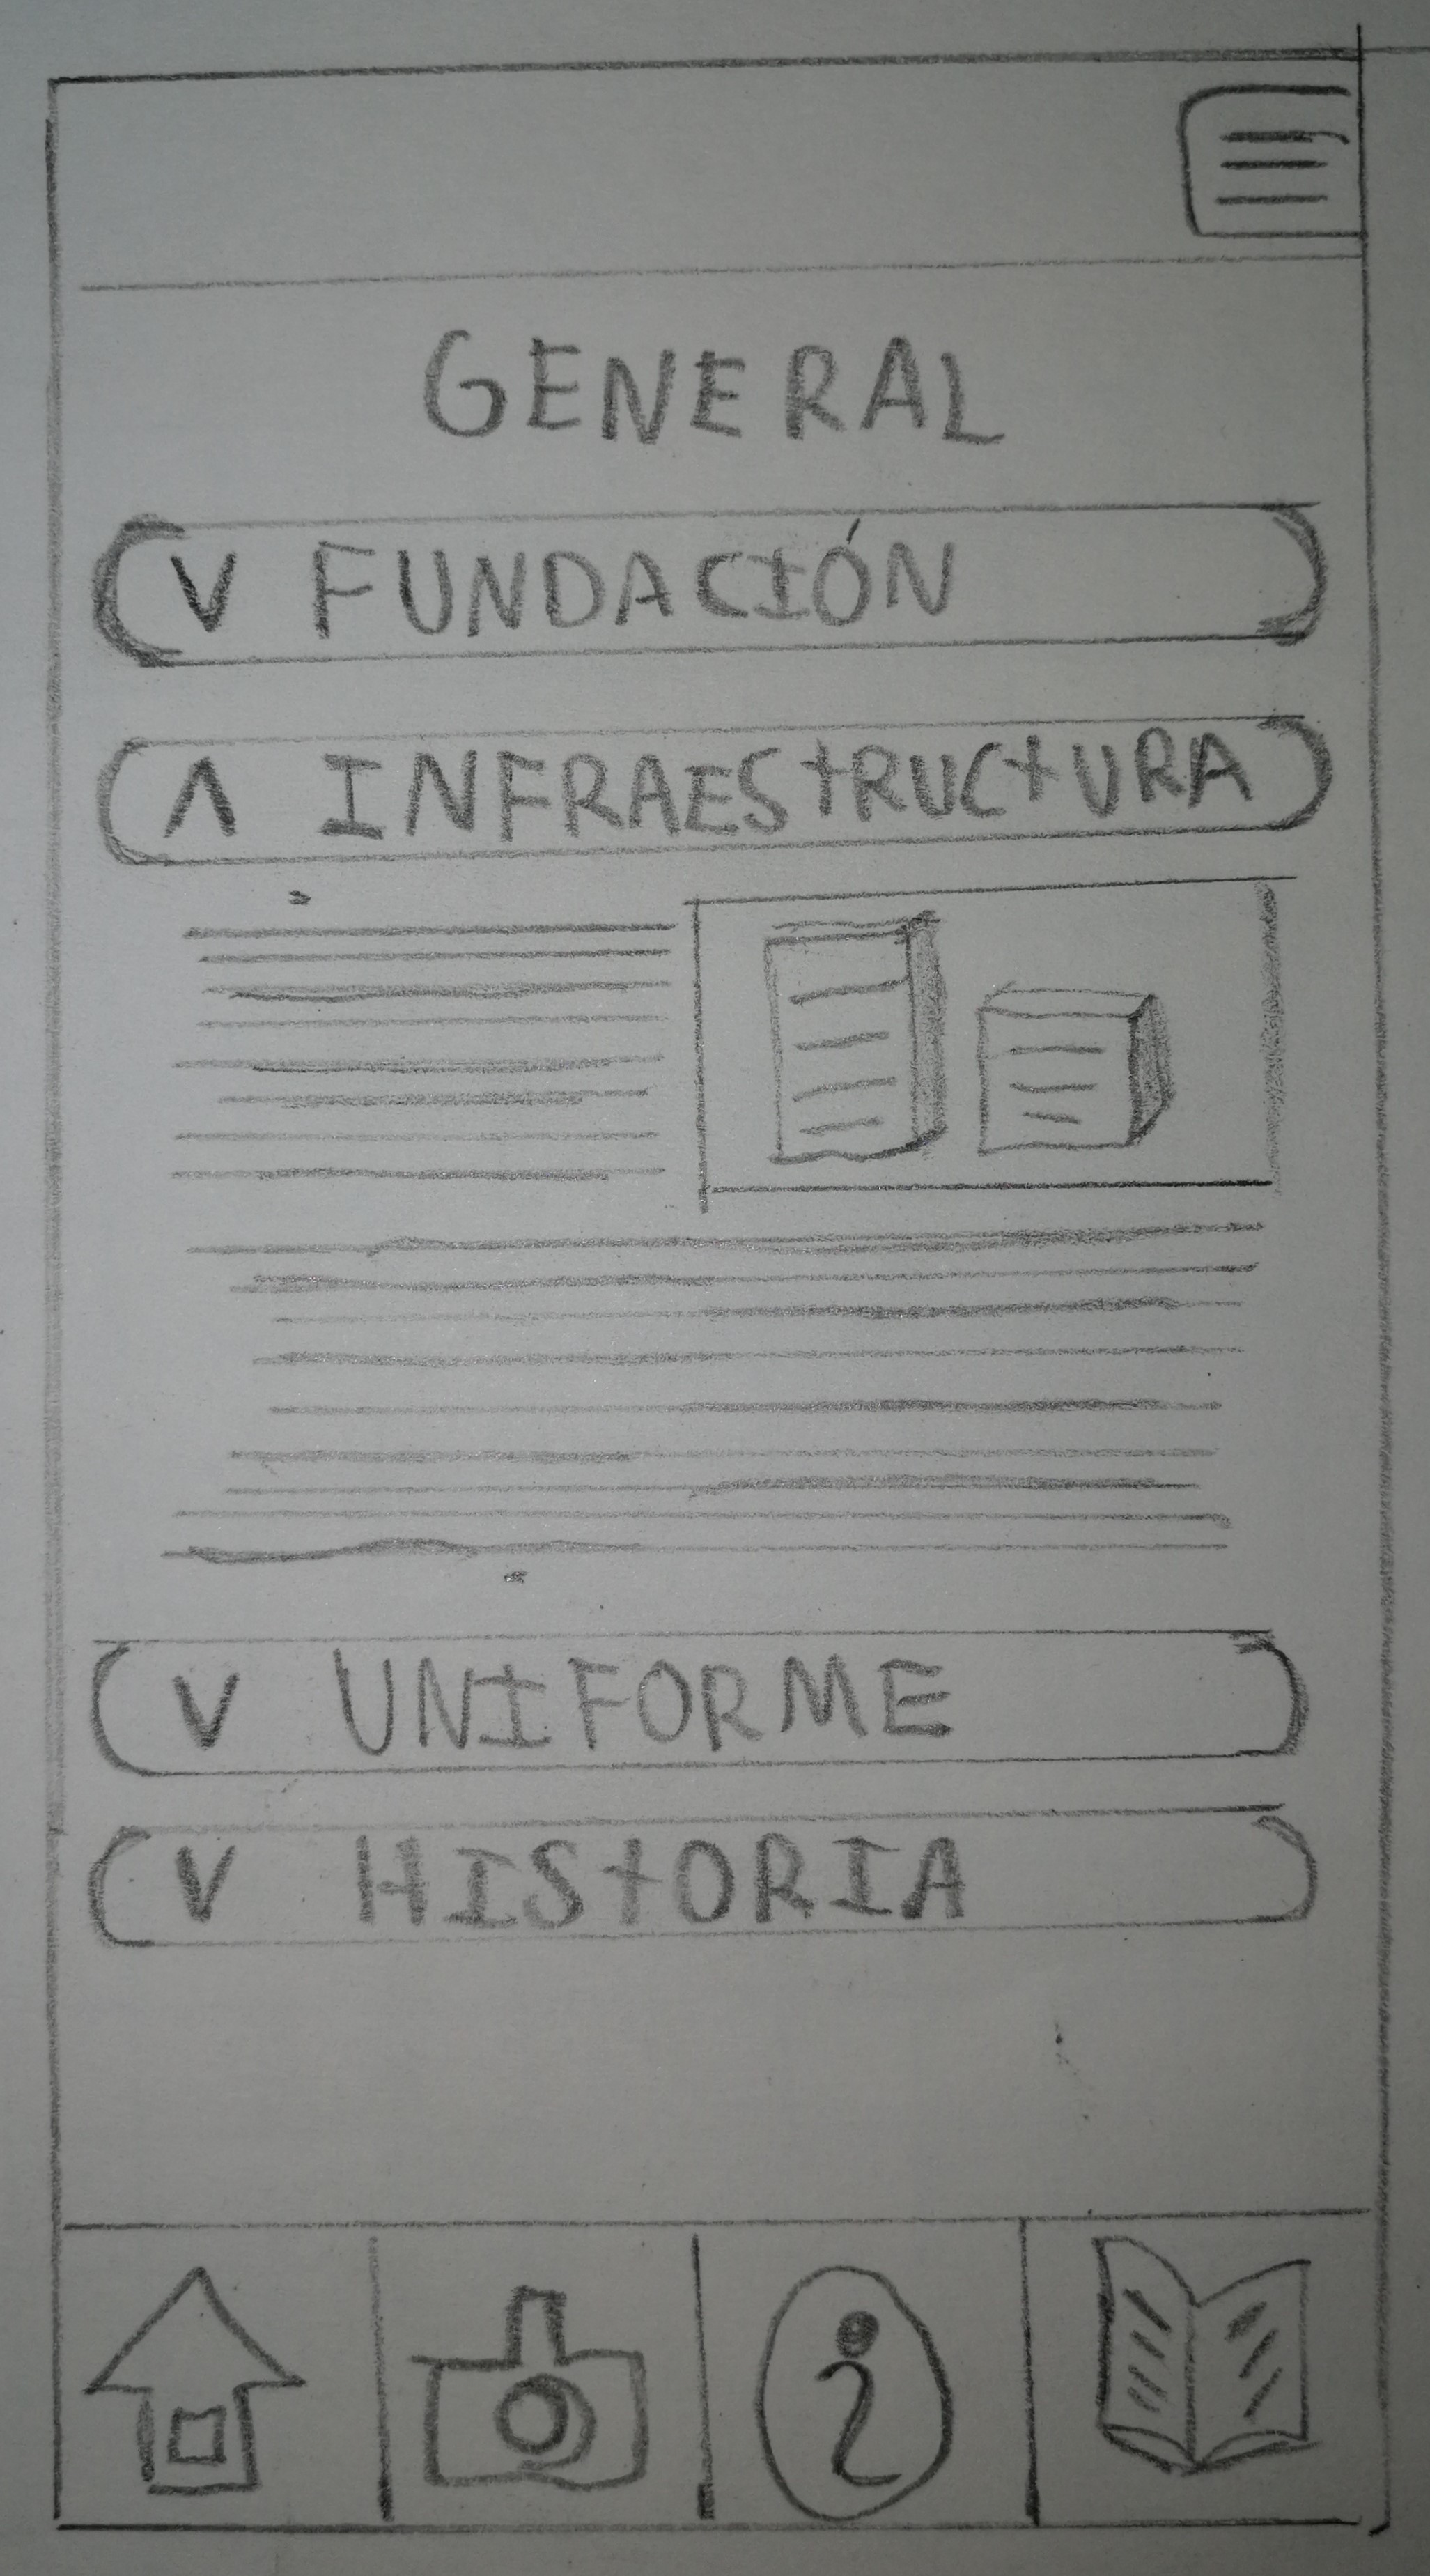 GENERAL
V FUNDACIÓN
Λ INFRAESTRUCTURA
V UNIFORME
V HISTORIA
i